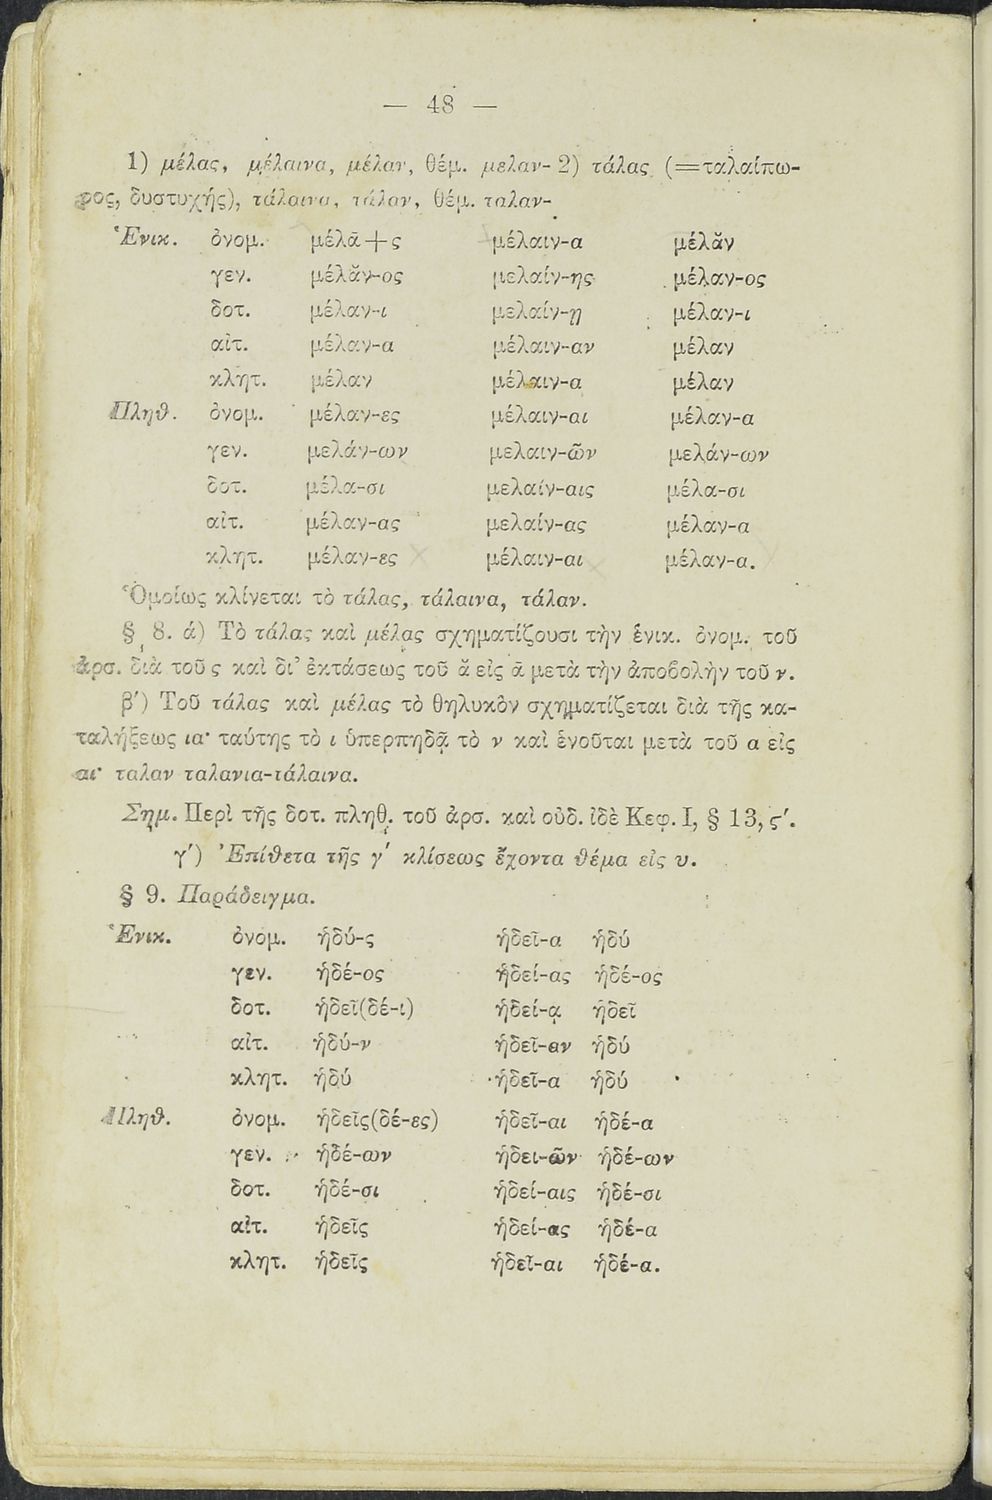 — 48 —
1) μέλας, μέλαινα, μέλαν, θέμ. μελαν- 2) τάλας (=ταλαίπω-
ρος, δυστυχής), τάλαινα, τάλαν, θέμ. ταλαν-
Ἑνικ. ὀνομ. μέλᾱ+ς μέλαιν-α μέλᾰν
γεν. μέλᾰν-ος μελαίν-ης μέλαν-ος
δοτ. μέλαν-ι μελαίν-ῃ μέλαν-ι
αἰτ. μέλαν-α μέλαιν-αν μέλαν
κλητ. μέλαν μέλαιν-α μέλαν
Πληθ. ὀνομ. μέλαν-ες μέλαιν-αι μέλαν-α
γεν. μελάν-ων μελαιν-ῶν μελάν-ων
δοτ. μέλα-σι μελαίν-αις μέλα-σι
αἰτ. μέλαν-ας μελαίν-ας μέλαν-α
κλητ. μέλαν-ες μέλαιν-αι μέλαν-α.
Ὁμοίως κλίνεται τὸ τάλας, τάλαινα, τάλαν.
§ 8. ά) Τὸ τάλας καὶ μέλας σχηματίζουσι τὴν ἑνικ. ὀνομ. τοῦ
ἀρσ. διὰ τοῦ ς καὶ δι' ἐκτάσεως τοῦ ᾰ εἰς ᾱ μετὰ τὴν ἀποβολὴν τοῦ ν.
β') Τοῦ τάλας καὶ μέλας τὸ θηλυκὸν σχηματίζεται διὰ τῆς κα-
ταλήξεως ια· ταύτης τὸ ι ὑπερπηδᾷ τὸ ν καὶ ἑνοῦται μετὰ τοῦ α εἰς
αι· ταλαν ταλανια-τάλαινα.
Σημ. Περὶ τῆς δοτ. πληθ. τοῦ ἀρσ. καὶ οὐδ. ἰδὲ Κεφ. I, § 13, ς'.
γ') Ἐπίθετα τῆς γ' κλίσεως ἔχοντα θέμα εἰς υ.
§ 9. Παράδειγμα.
Ἑνικ. ὀνομ. ἡδύ-ς ἡδεῖ-α ἡδύ
γεν. ἡδέ-ος ἡδεί-ας ἡδέ-ος
δοτ. ἡδεῖ(δέ-ι) ἡδεί-ᾳ ἡδεῖ
αἰτ. ἡδύ-ν ἡδεῖ-αν ἡδύ
κλητ. ἡδύ ἡδεῖ-α ἡδύ
Πληθ. ὀνομ. ἡδεῖς(δέ-ες) ἡδεῖ-αι ἡδέ-α
γεν. ἡδέ-ων ἡδει-ῶν ἡδέ-ων
δοτ. ἡδέ-σι ἡδεί-αις ἡδέ-σι
αἰτ. ἡδεῖς ἡδεί-ας ἡδέ-α
κλητ. ἡδεῖς ἡδεῖ-αι ἡδέ-α.